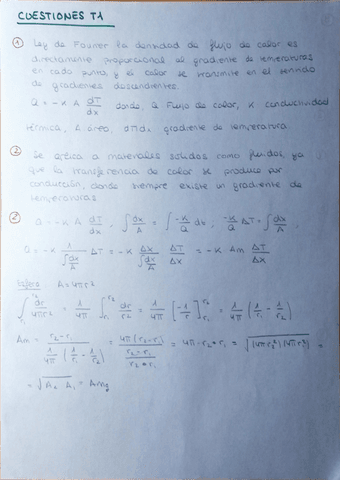 CUESTIONES T1
① Ley de Fourier la densidad de flujo de calor es
directamente proporcional al gradiente de temperaturas
en cada punto y el calor se transmite en el sentido
de gradientes descendientes.
Q = -K A dT/dx donde, Q Flujo de calor, K conductividad
térmica, A área, dT/dx gradiente de temperatura.
② Se aplica a materiales sólidos como fluidos, ya
que la transferencia de calor se produce por
conducción, donde siempre existe un gradiente de
temperaturas
Q = -K A dT/dx , ∫ dx/A = ∫ -K/Q dt , -K/Q ΔT = ∫ dx/A ,
Q = -K 1/∫dx/A ΔT = -K Δx/∫dx/A ΔT/Δx = -K Am ΔT/Δx
Esfera A = 4πr²
∫ r₁ r₂ dr/4πr² = 1/4π ∫ r₁ r₂ dr/r² = 1/4π [-1/r] r₁ r₂ = 1/4π (1/r₁ - 1/r₂)
Am = r₂-r₁ / 1/4π (1/r₁ - 1/r₂) = 4π(r₂-r₁) / r₂-r₁/r₂·r₁ = 4π·r₂·r₁ = √(4πr₂²)(4πr₁²) =
= √A₂ A₁ = Am